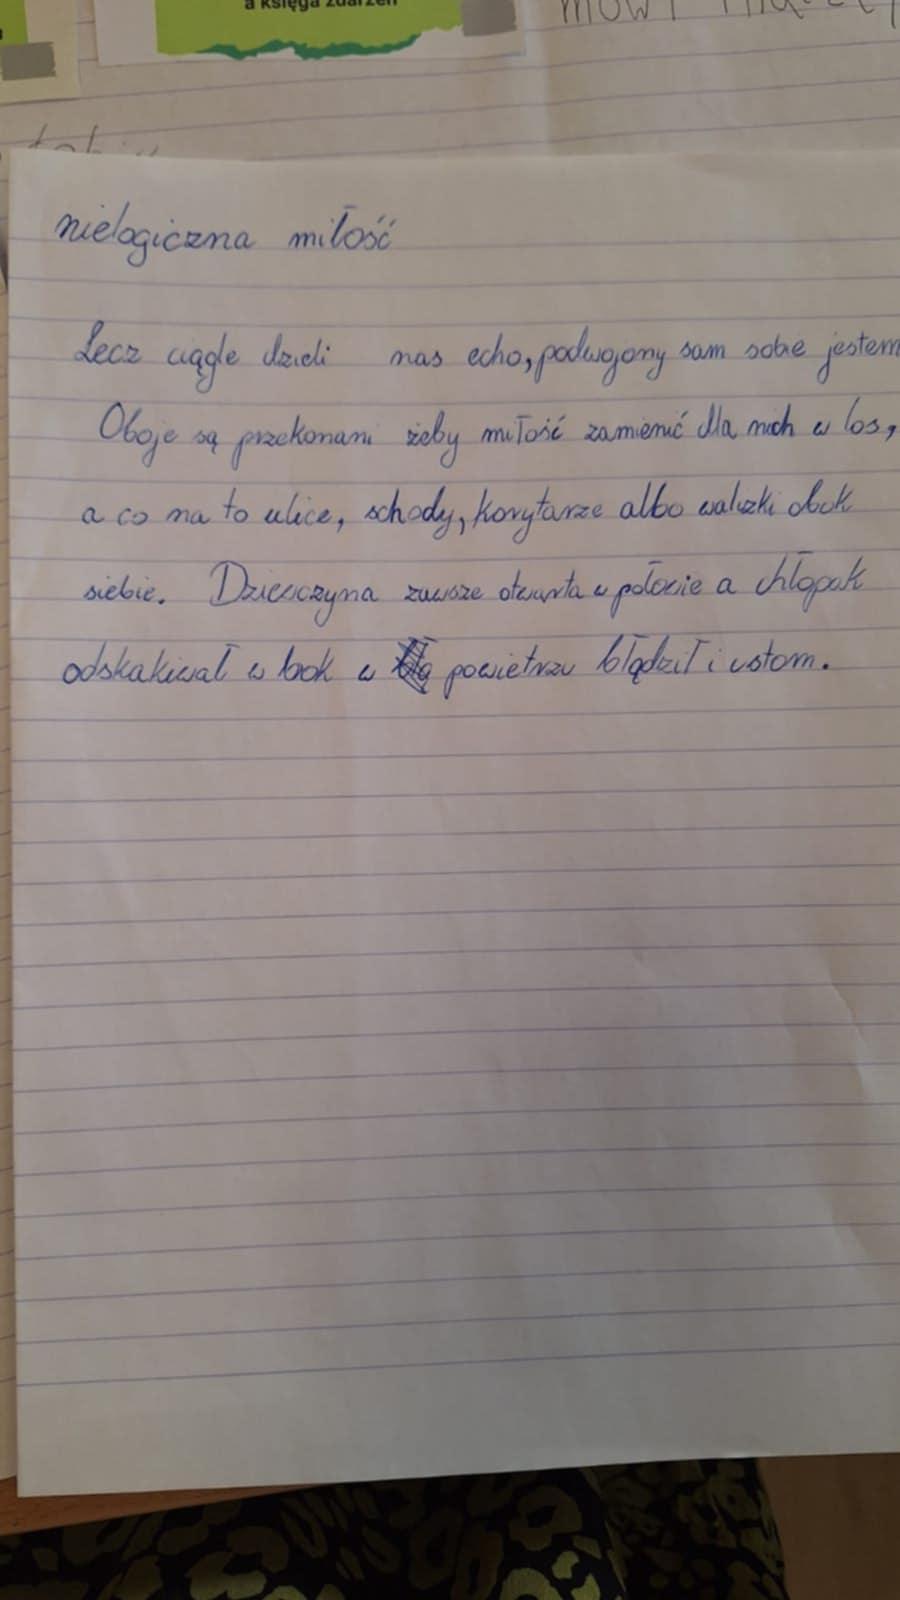 a księga zdarzeń
mówi
nielogiczna miłość
Lecz ciągle dzieli nas echo, podwojony sam sobie jestem
Oboje są przekonani żeby miłość zamienić dla nich w los,
a co na to ulice, schody, korytarze albo walizki obok
siebie. Dziewczyna zawsze otwarta w połowie a chłopak
odskakiwał w bok w powietrzu błądził i ustom.